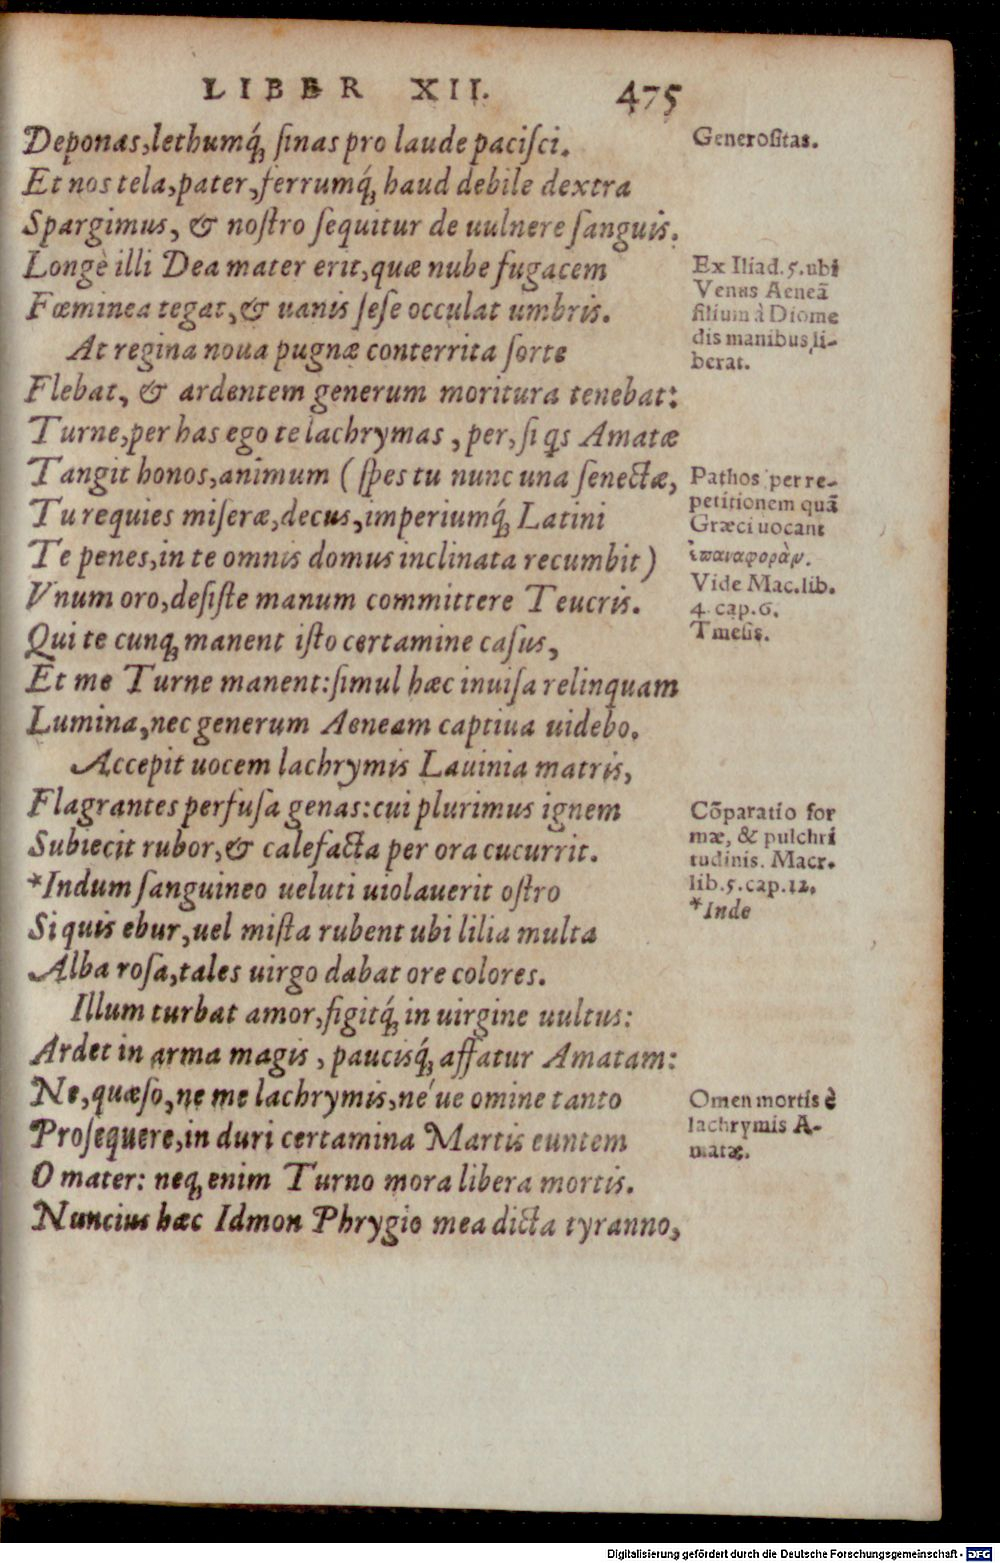 LIBER XII. 475
Deponas, lethumq́; ſinas pro laude paciſci.
Et nos tela, pater, ferrumq́; haud debile dextra
Spargimus, & noſtro ſequitur de uulnere ſanguis.
Longè illi Dea mater erit, quæ nube fugacem
Fœminea tegat, & uanis ſeſe occulat umbris.
At regina noua pugnæ conterrita ſorte
Flebat, & ardentem generum moritura tenebat:
Turne, per has ego te lachrymas, per, ſi qs Amatæ
Tangit honos, animum (ſpes tu nunc una ſenectæ,
Tu requies miſeræ, decus, imperiumq́; Latini
Te penes, in te omnis domus inclinata recumbit)
Vnum oro, deſiſte manum committere Teucris.
Qui te cunq; manent iſto certamine caſus,
Et me Turne manent: ſimul hæc inuiſa relinquam
Lumina, nec generum Aeneam captiua uidebo.
Accepit uocem lachrymis Lauinia matris,
Flagrantes perfuſa genas: cui plurimus ignem
Subiecit rubor, & calefacta per ora cucurrit.
*Indum ſanguineo ueluti uiolauerit oſtro
Si quis ebur, uel miſta rubent ubi lilia multa
Alba roſa, tales uirgo dabat ore colores.
Illum turbat amor, figitq́; in uirgine uultus:
Ardet in arma magis, paucisq́; affatur Amatam:
Ne, quæſo, ne me lachrymis, né ue omine tanto
Proſequere, in duri certamina Martis euntem
O mater: neq; enim Turno mora libera mortis.
Nuncius hæc Idmon Phrygio mea dicta tyranno,
Generoſitas.
Ex Iliad. 5. ubi
Venus Aeneã
filium à Diome
dis manibus li-
berat.
Pathos per re-
petitionem quã
Græci uocant
ἐπαναφορὰν.
Vide Mac. lib.
4. cap. 6.
Tmeſis.
Cõparatio for
mæ, & pulchri
tudinis. Macr.
lib. 5. cap. 12.
*Inde
Omen mortis è
lachrymis A-
matæ.
Digitalisierung gefördert durch die Deutsche Forschungsgemeinschaft - DFG